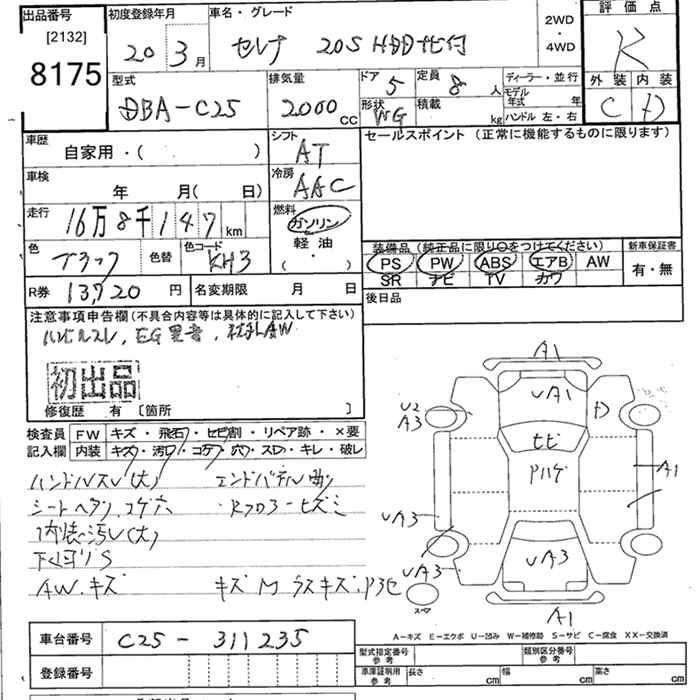 出品番号 初度登録年月 車名・グレード 2WD・4WD 評価点
[2132]
8175
20 3月 セレナ 20S HDDナビ付 R
型式 排気量 ドア 定員 ディーラー・並行 外装 内装
DBA-C25 2000 CC 5 8人 モデル年式 年 C D
形状 積載 kg ハンドル 左・右
WG
車歴 シフト セールスポイント(正常に機能するものに限ります)
自家用・( ) AT
車検 冷房
年 月( 日) AAC
走行 燃料
16万8千147km ガソリン
軽油
・
( )
色 色替 色コード
ブラック KH3
装備品(純正品に限り○をつけてください) 新車保証書
PS PW ABS エアB AW 有・無
SR ナビ TV カワ
R券 13,720円 名変期限 月 日 後日品
注意事項申告欄(不具合内容等は具体的に記入して下さい)
初出品
修復歴 有 〔箇所 〕
検査員 FW キズ・飛石・セビ割・リペア跡・×要
記入欄 内装 キズ・汚・コゲ・穴・スレ・キレ・破レ
ハンドルスレ(大)
内装汚レ(大)
下回りS
AW.キズ
A1
UA1
U2
A3
ヒビ
A1
UA3
UA3
UA3
スペア
A1
A-キズ E-エクボ U-凹み W-補修跡 S-サビ C-腐食 XX-交換済
車台番号 C25-311235
登録番号
型式指定番号 参考 類別区分番号 参考
車庫証明用 参考 長さ cm 幅 cm 高さ cm